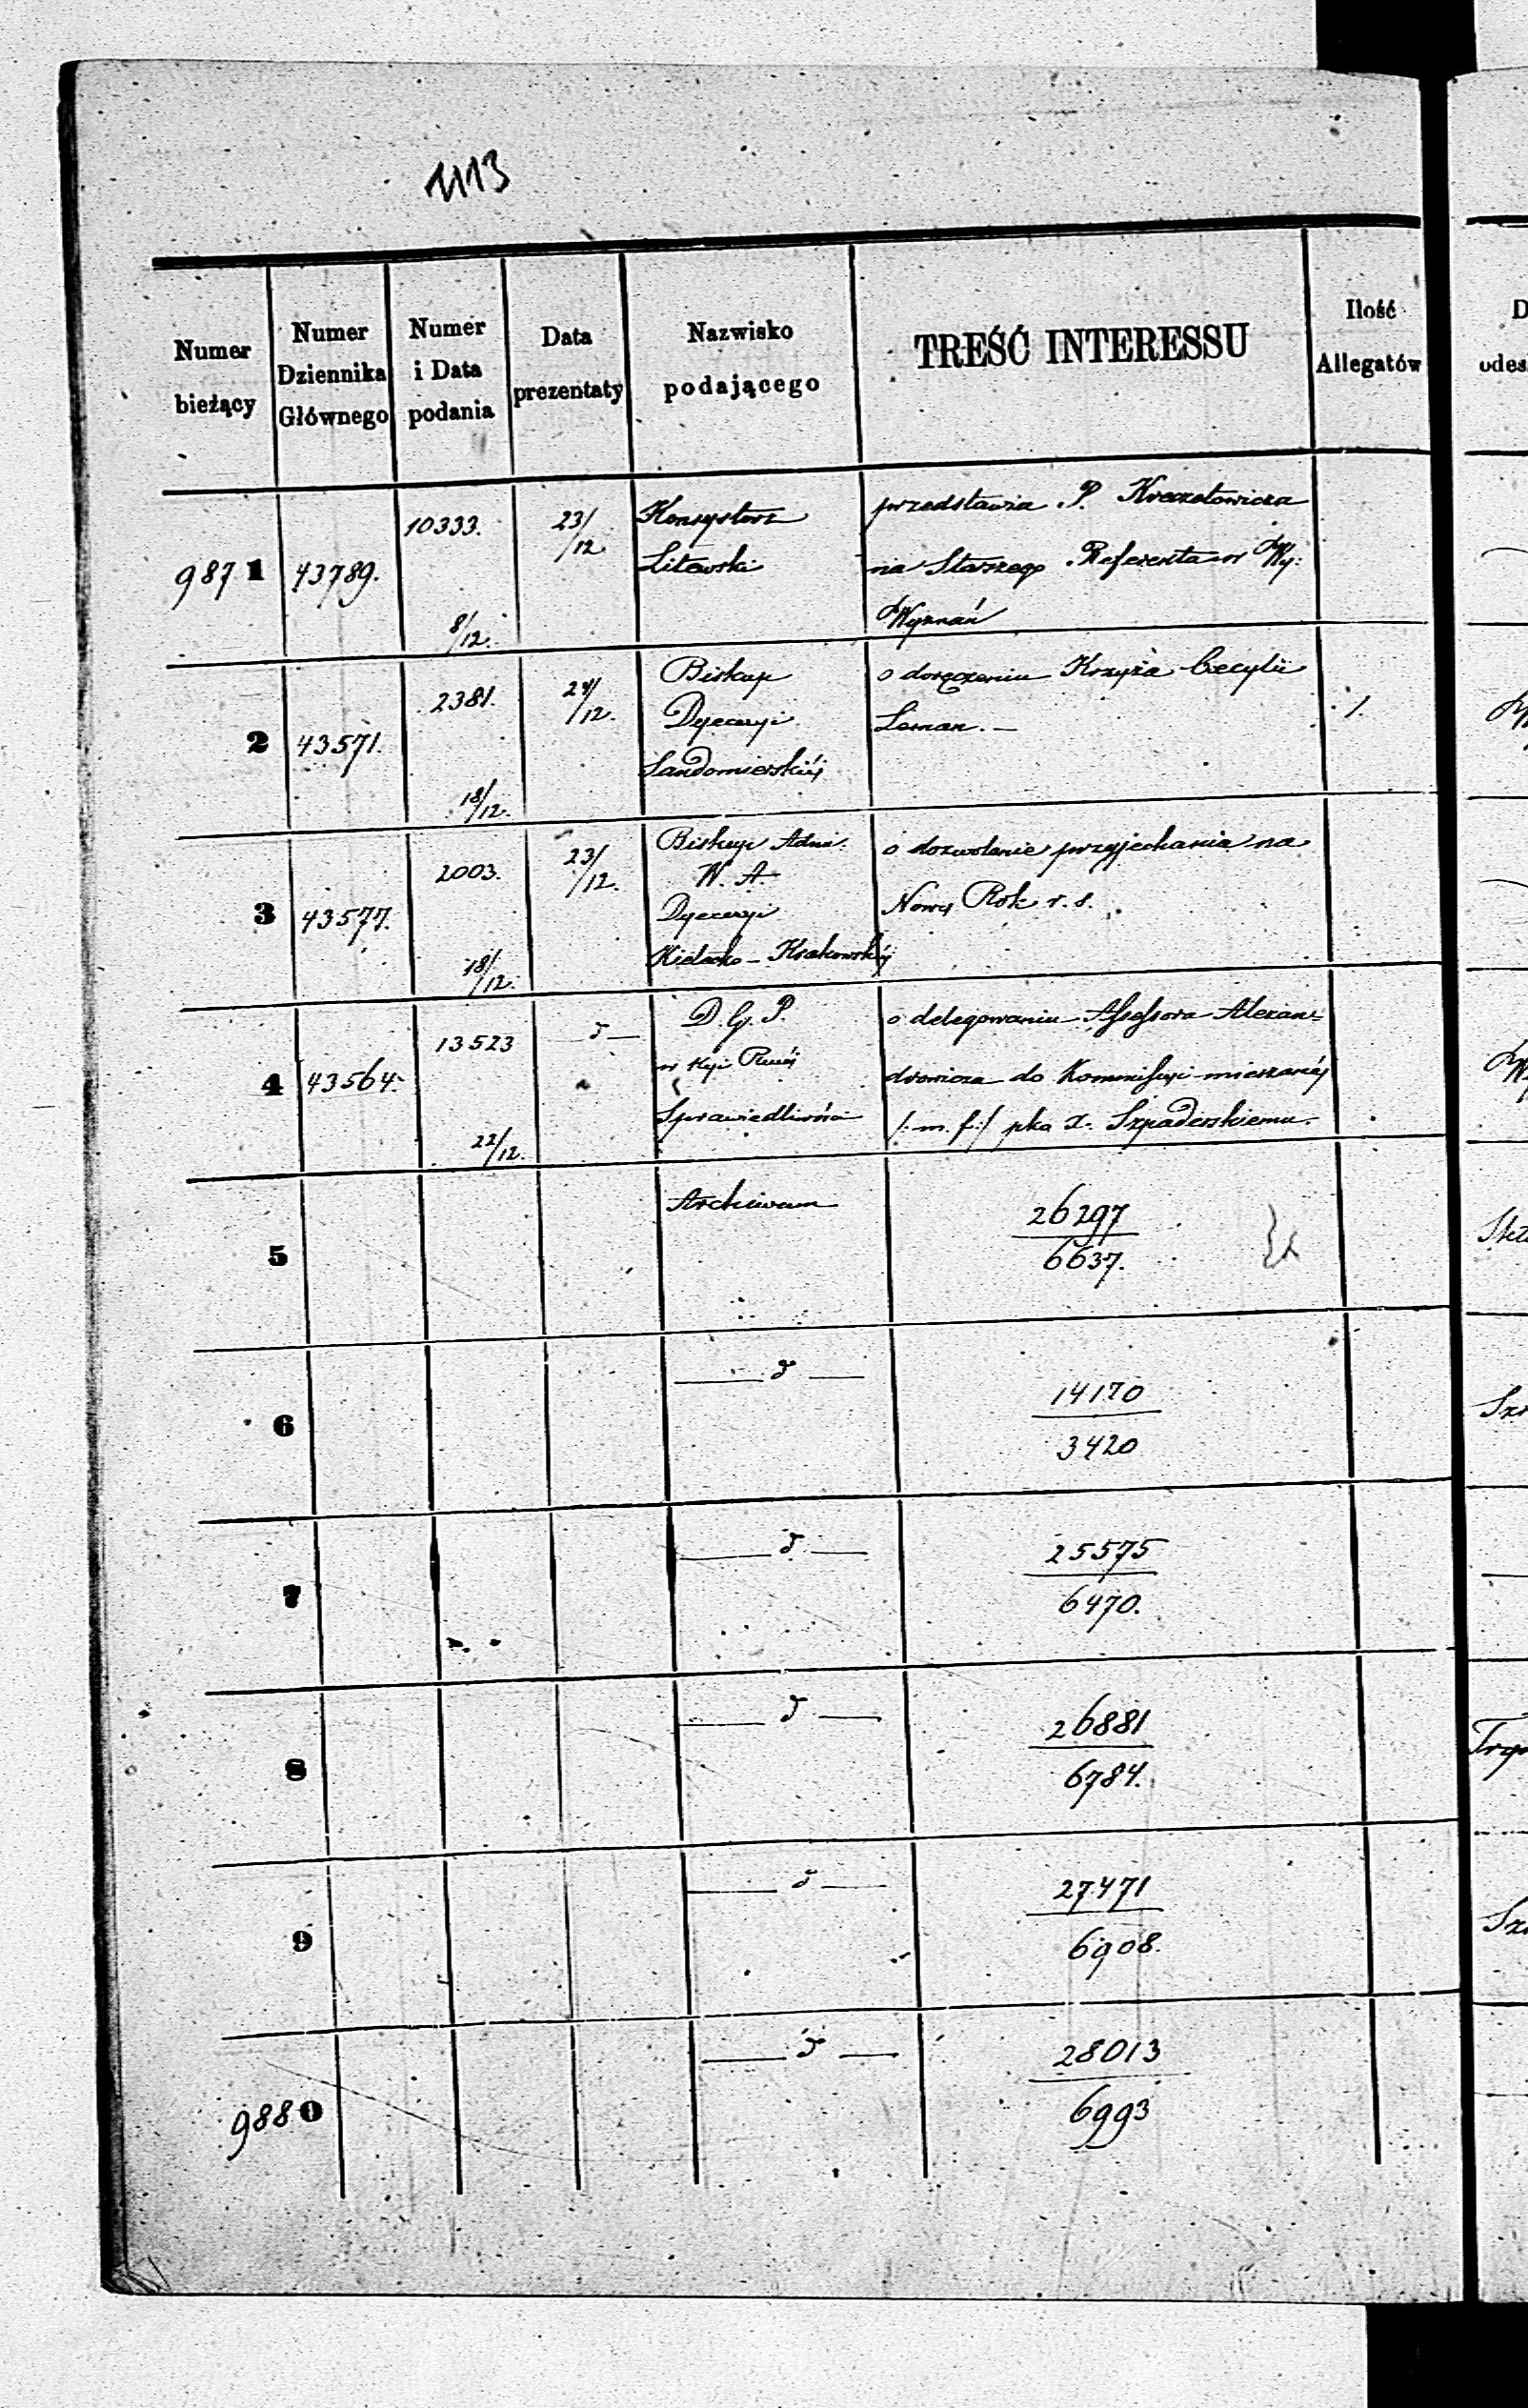 1113
Numer bieżący
Numer Dziennika Głównego
Numer i Data podania
Data prezentaty
Nazwisko podającego
TREŚĆ INTERESSU
Ilość Allegatów
9871
43789.
10333.
8/12.
23/12
Konsystorz
Litewski
przedstawia P.
na Starszego Referenta w Wy:
Wyznań
2
43571.
2381.
18/12.
24/12.
Biskup
Dyecezyi
Sandomierskiéj
o doręczeniu Krzyża Cecylii
Leman. —
1.
3
43577.
2003.
18/12.
23/12.
Biskup Adm:
W. A.
Dyecezyi
Kielecko - Krakowskiéj
o dozwolenie przyjechania na
Nowy Rok r. s.
4
43564.
13523
22/12.
— d —
D. G. P.
w Kyi
Sprawiedliwości
o delegowaniu Assessora Alexan=
drowicza do Kommissyi mieszanéj
/: m. f :/ pko X. Szpaderskiemu.
5
Archiwum
26297
6637.
6
— d —
14170
3420
7
— d —
25575
6470.
8
— d —
26881
6784.
9
— d —
27471
6908.
9880
— d —
28013
6993